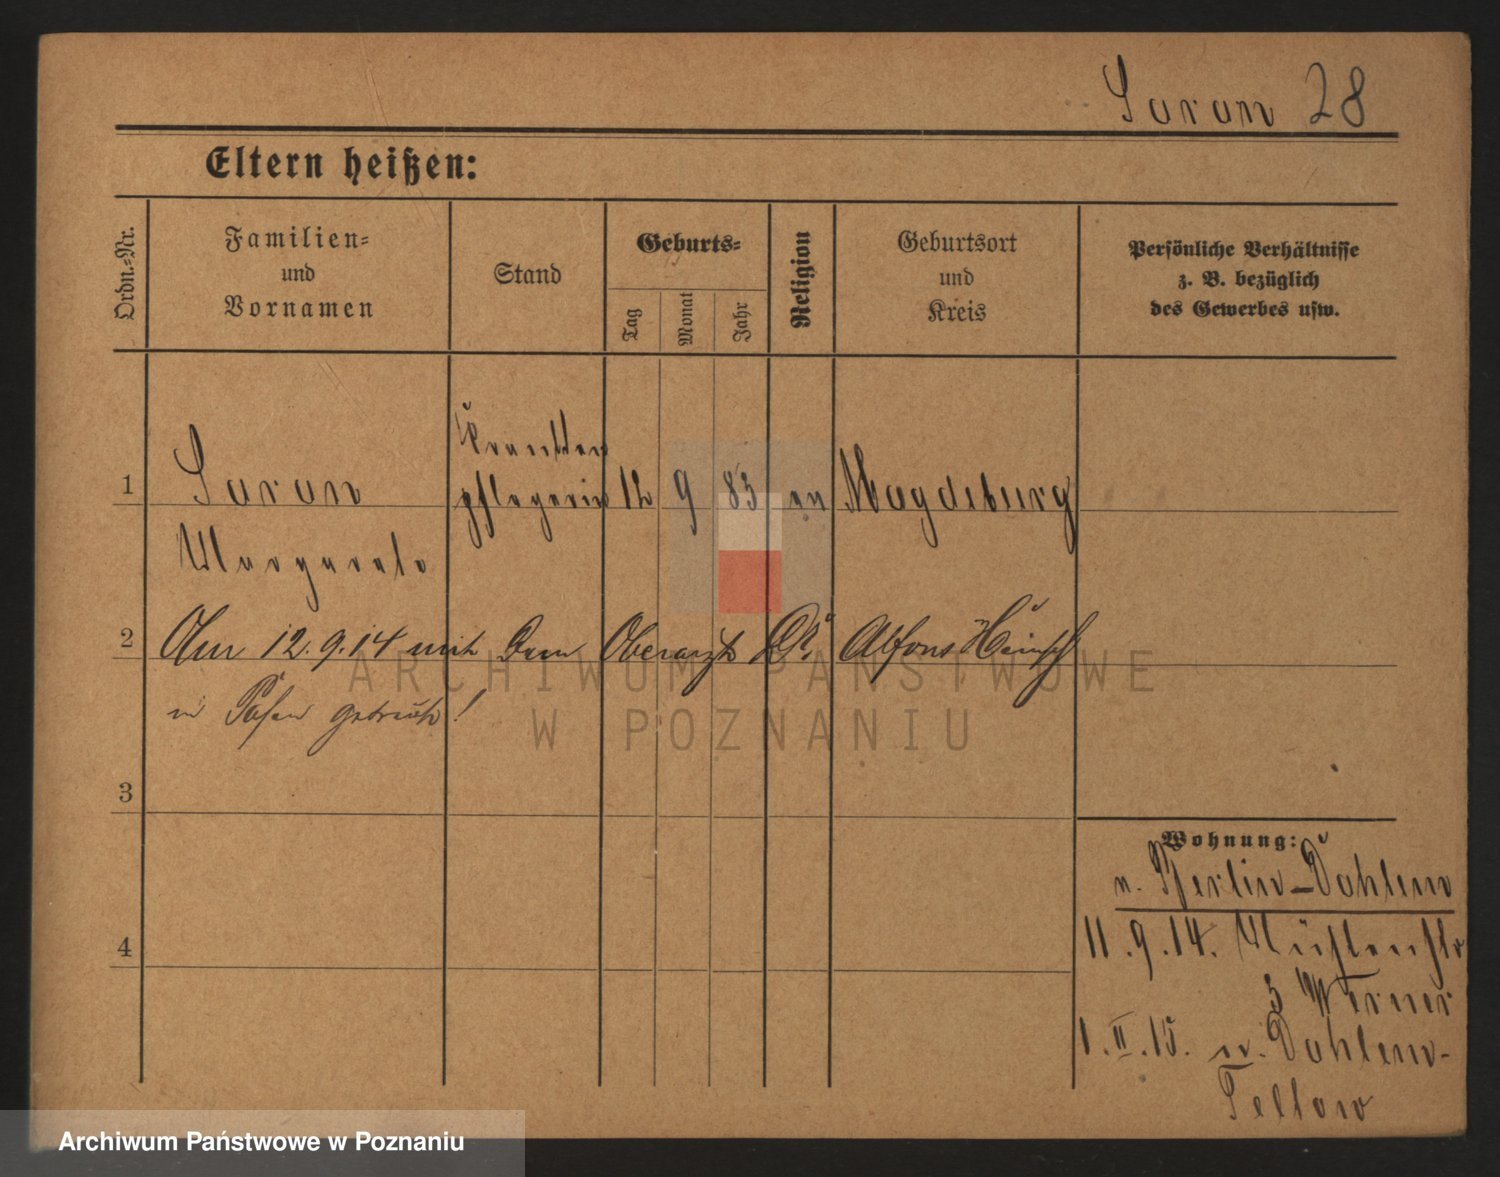 Saran 28
Eltern heißen:
Ordn.-Nr.
Familien-
und
Vornamen
Stand
Geburts-
Tag
Monat
Jahr
Religion
Geburtsort
und
Kreis
Persönliche Verhältnisse
z. B. bezüglich
des Gewerbes usw.
1
Saran
Margarete
Kranken
pflegerin
12
9
83
ev
Magdeburg
2
Am 12.9.14 mit dem Oberarzt Dr. Alfons
in Posen getraut!
3
4
Wohnung:
n. Berlin-Dahlem
11.9.14.
3 Werner
1.II.15. n. Dahlem-
Teltow
ARCHIWUM PAŃSTWOWE
W POZNANIU
Archiwum Państwowe w Poznaniu